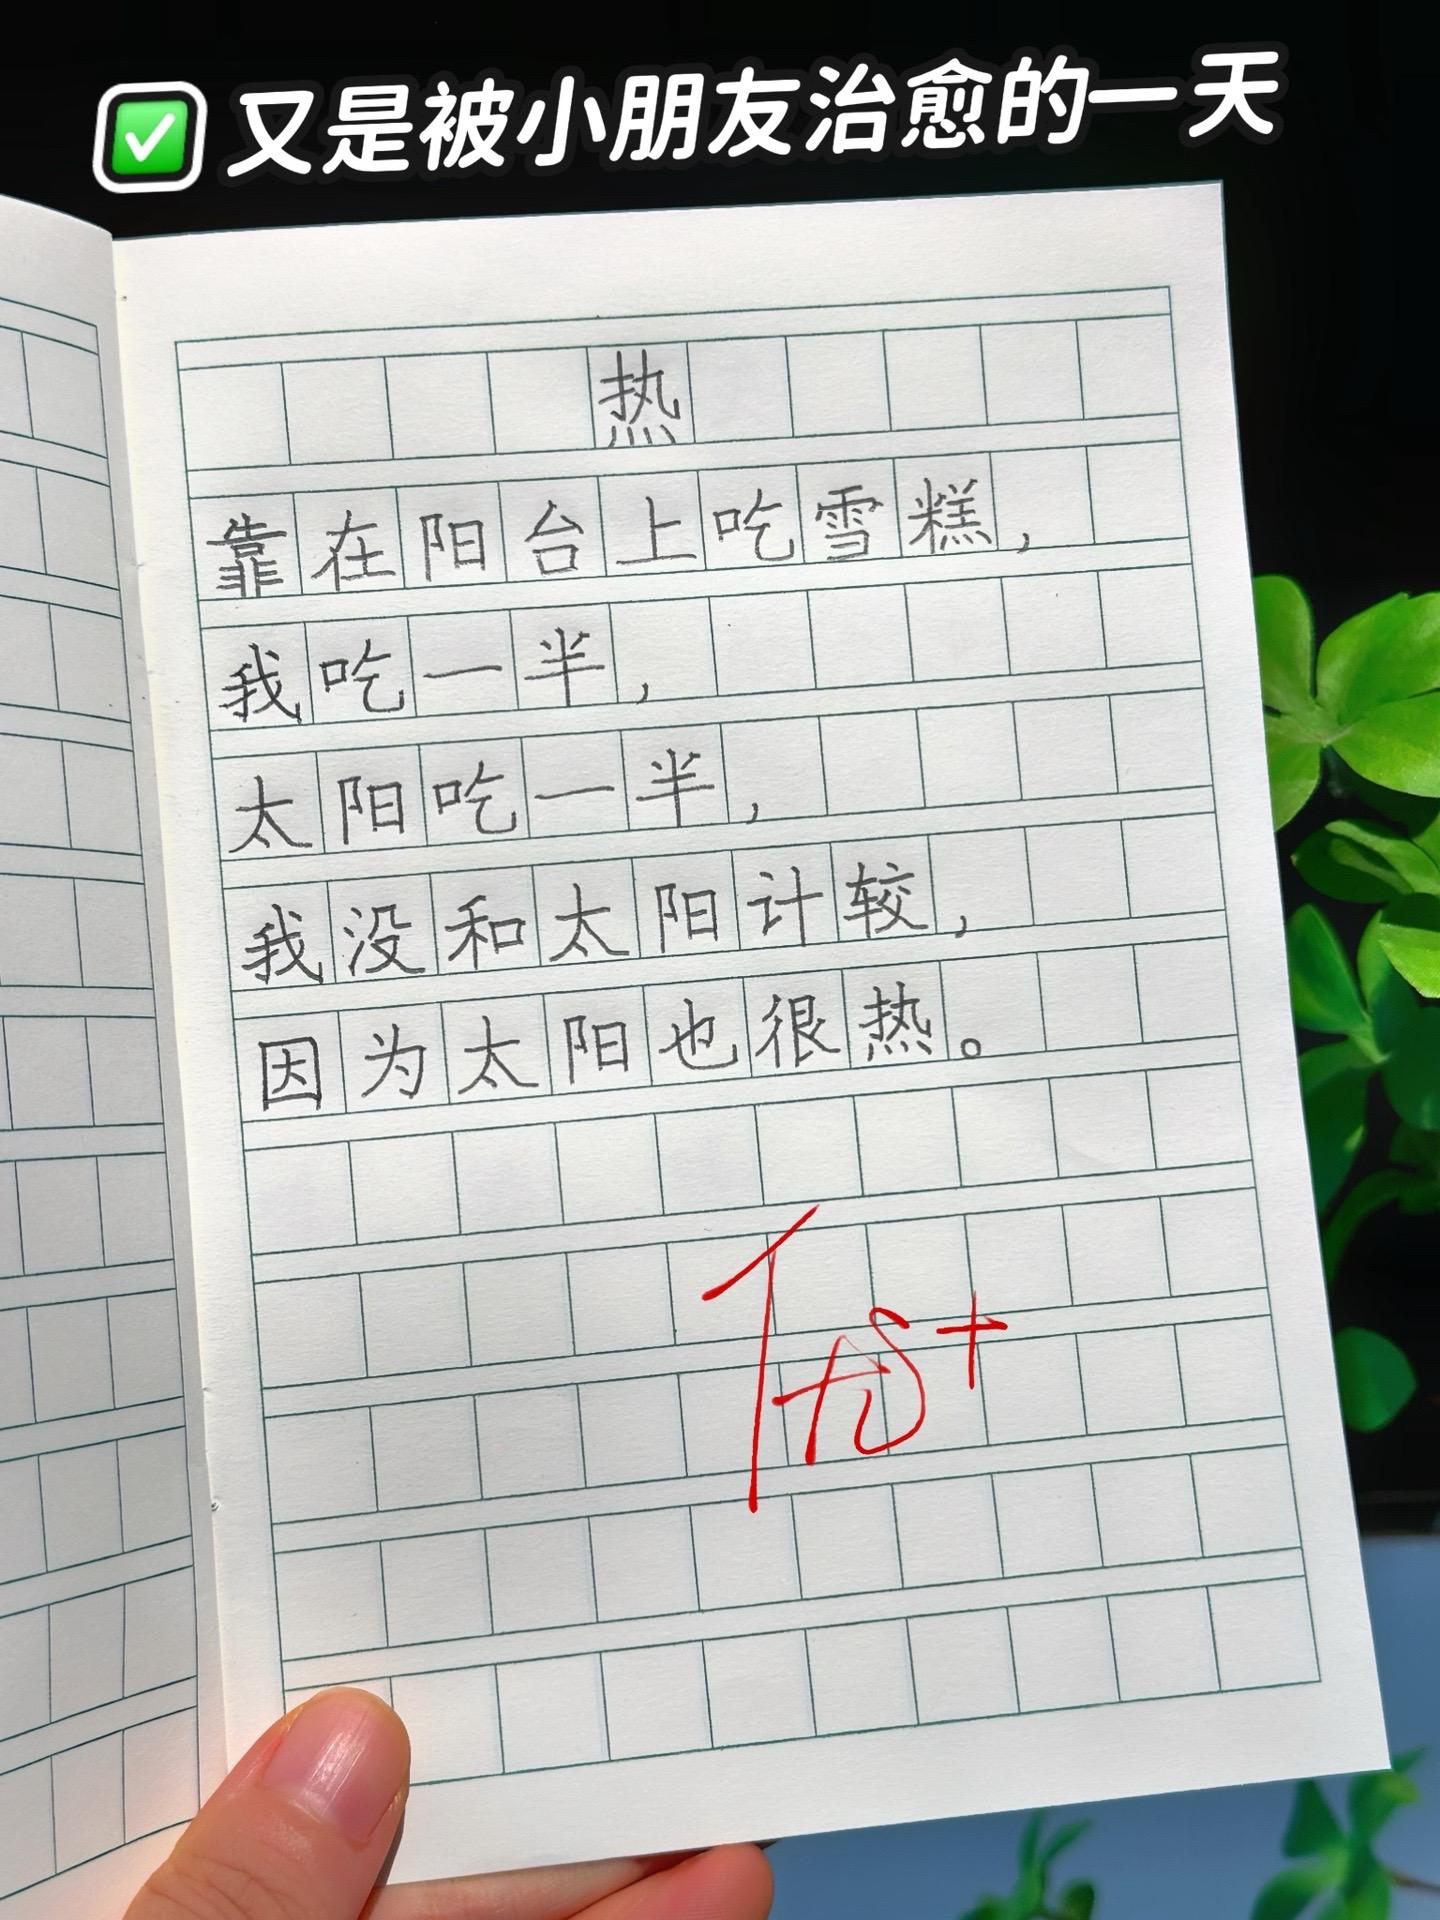 ✅又是被小朋友治愈的一天
热
靠在阳台上吃雪糕，
我吃一半，
太阳吃一半，
我没和太阳计较，
因为太阳也很热。
优+